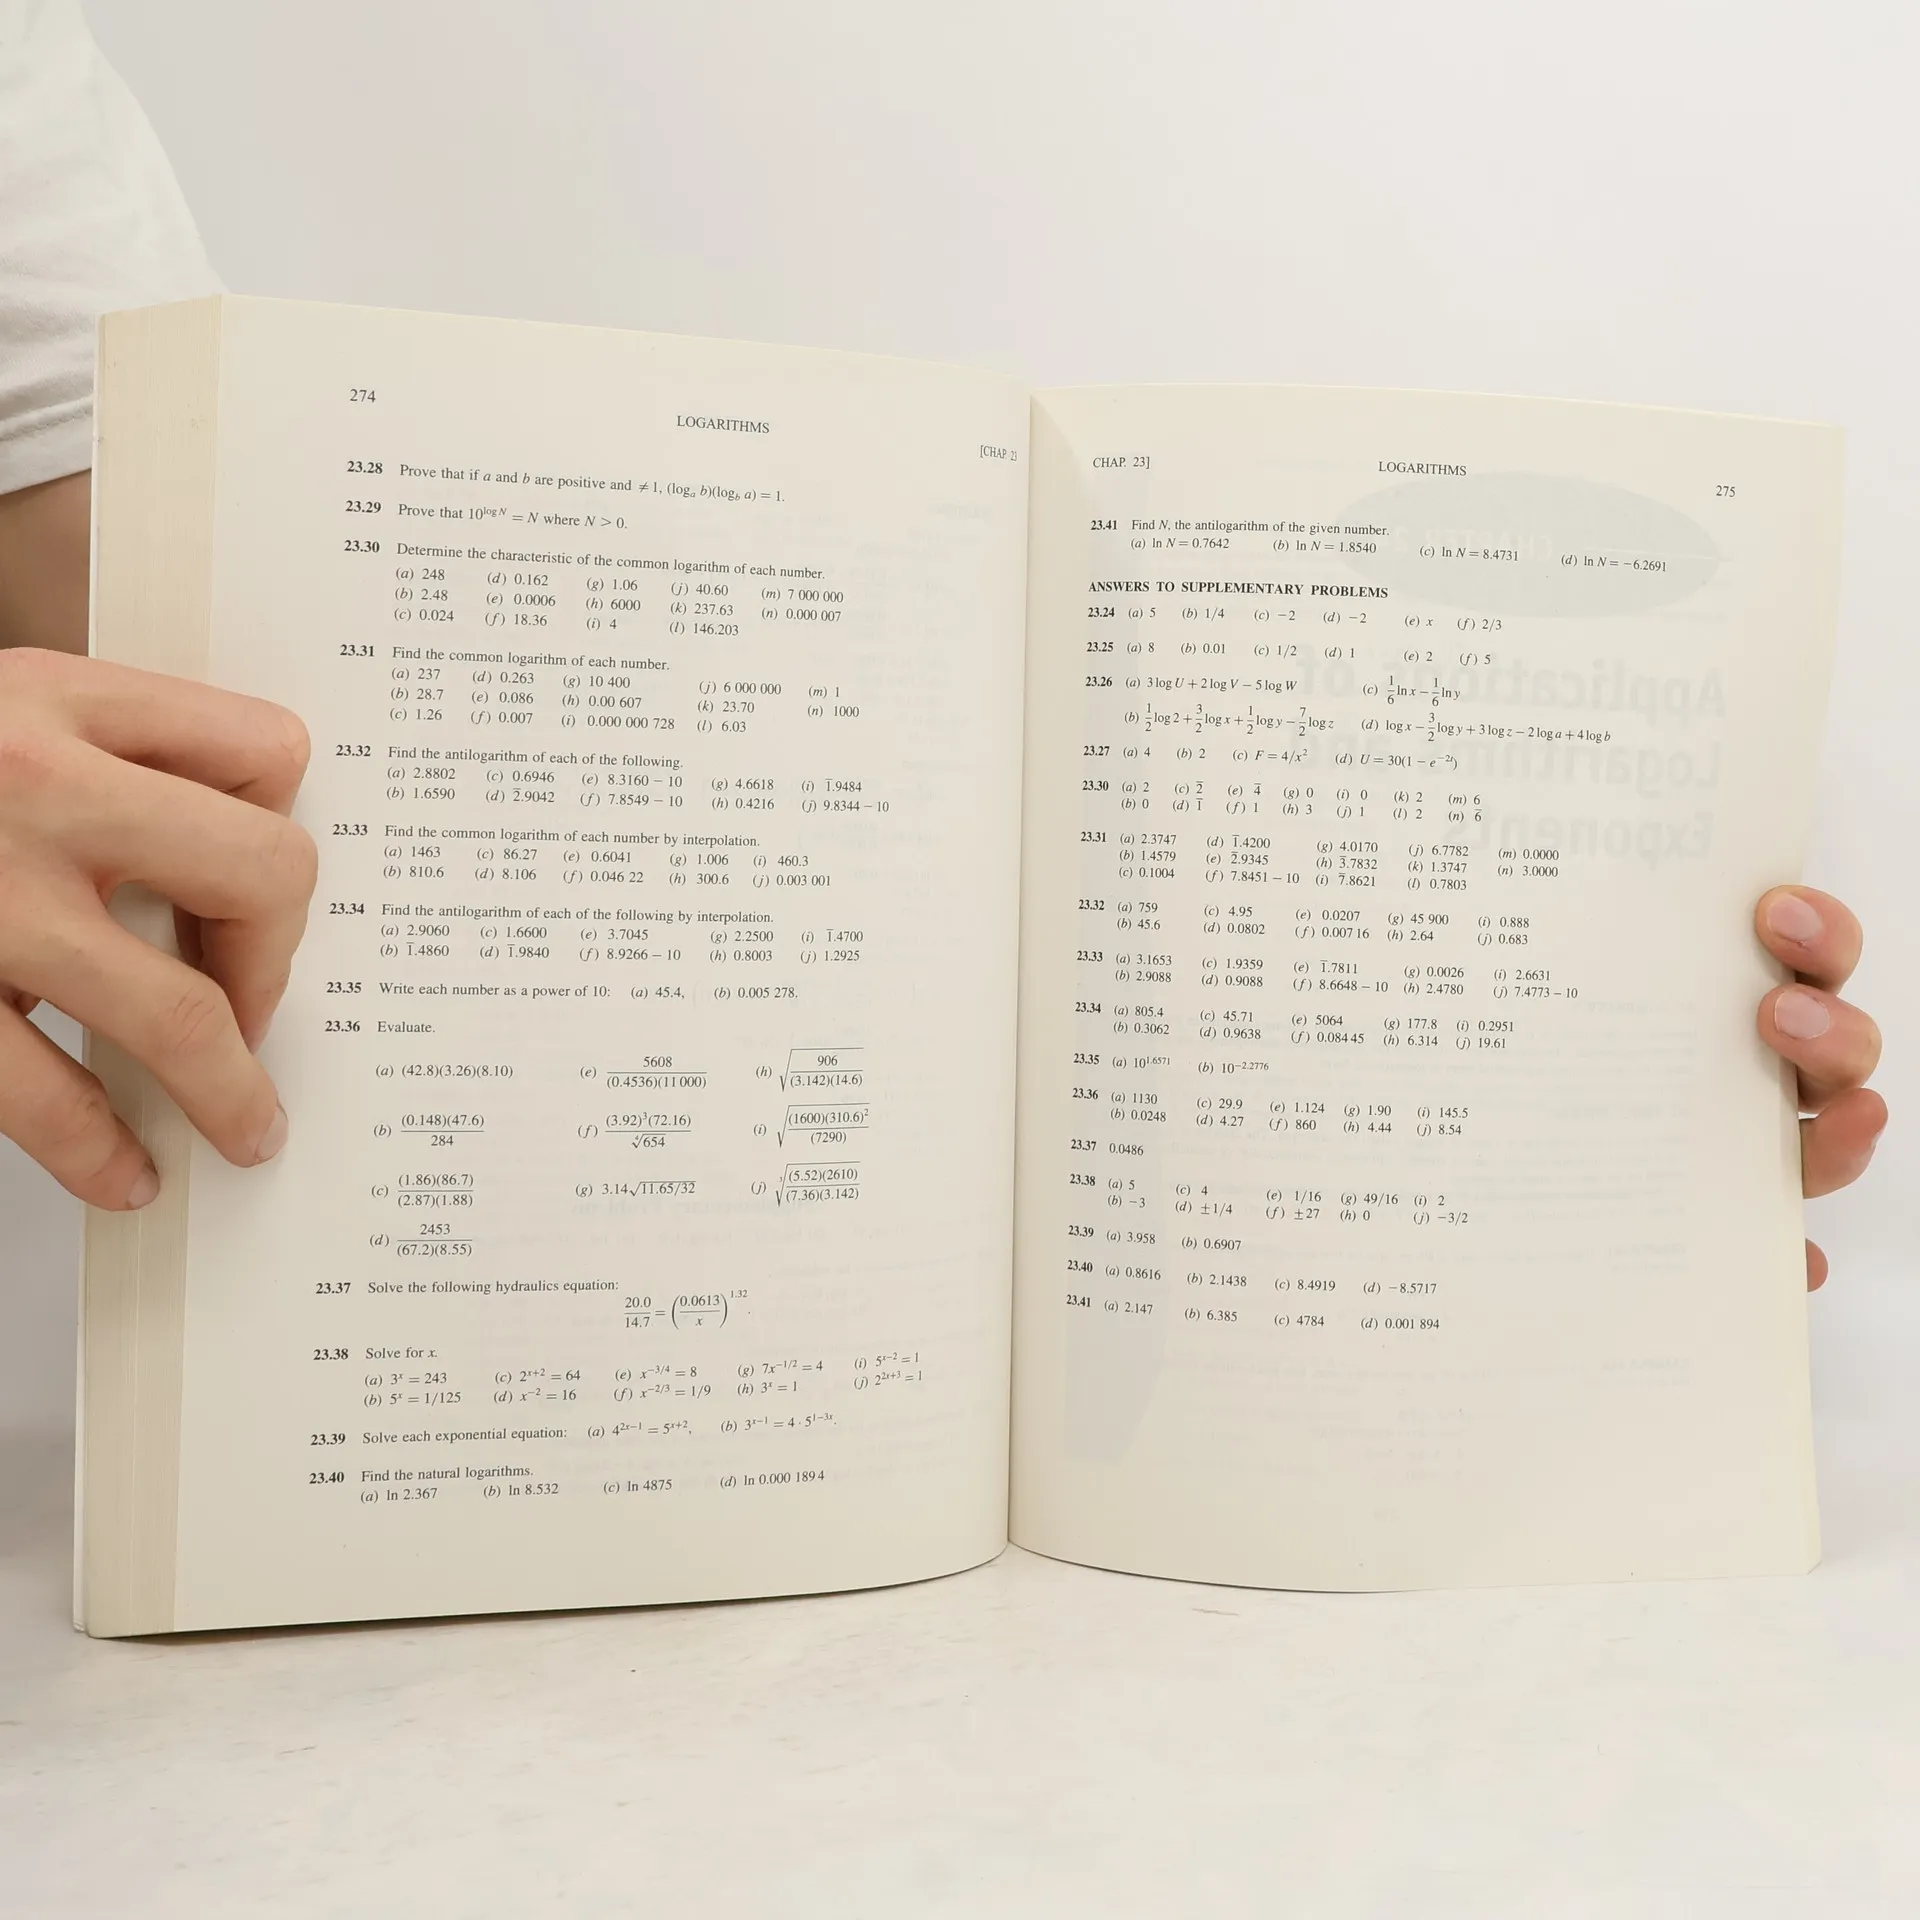 274
LOGARITHMS
[CHAP. 23
23.28 Prove that if a and b are positive and ≠ 1, (logₐ b)(log_b a) = 1.
23.29 Prove that 10^{log N} = N where N > 0.
23.30 Determine the characteristic of the common logarithm of each number.
(a) 248 (d) 0.162 (g) 1.06 (j) 40.60 (m) 7 000 000
(b) 2.48 (e) 0.0006 (h) 6000 (k) 237.63 (n) 0.000 007
(c) 0.024 (f) 18.36 (i) 4 (l) 146.203
23.31 Find the common logarithm of each number.
(a) 237 (d) 0.263 (g) 10 400 (j) 6 000 000 (m) 1
(b) 28.7 (e) 0.086 (h) 0.00 607 (k) 23.70 (n) 1000
(c) 1.26 (f) 0.007 (i) 0.000 000 728 (l) 6.03
23.32 Find the antilogarithm of each of the following.
(a) 2.8802 (c) 0.6946 (e) 8.3160 − 10 (g) 4.6618 (i) 1̅.9484
(b) 1.6590 (d) 2̅.9042 (f) 7.8549 − 10 (h) 0.4216 (j) 9.8344 − 10
23.33 Find the common logarithm of each number by interpolation.
(a) 1463 (c) 86.27 (e) 0.6041 (g) 1.006 (i) 460.3
(b) 810.6 (d) 8.106 (f) 0.046 22 (h) 300.6 (j) 0.003 001
23.34 Find the antilogarithm of each of the following by interpolation.
(a) 2.9060 (c) 1.6600 (e) 3.7045 (g) 2.2500 (i) 1̅.4700
(b) 1̅.4860 (d) 1̅.9840 (f) 8.9266 − 10 (h) 0.8003 (j) 1.2925
23.35 Write each number as a power of 10: (a) 45.4, (b) 0.005 278.
23.36 Evaluate.
(a) (42.8)(3.26)(8.10) (e) 5608/((0.4536)(11 000)) (h) √(906/((3.142)(14.6)))
(b) (0.148)(47.6)/284 (f) (3.92)³(72.16)/⁴√654 (i) √((1600)(310.6)²/(7290))
(c) (1.86)(86.7)/((2.87)(1.88)) (g) 3.14√11.65/32 (j) ³√((5.52)(2610)/((7.36)(3.142)))
(d) 2453/((67.2)(8.55))
23.37 Solve the following hydraulics equation:
20.0/14.7 = (0.0613/x)^{1.32}.
23.38 Solve for x.
(a) 3^x = 243 (c) 2^{x+2} = 64 (e) x^{−3/4} = 8 (g) 7x^{−1/2} = 4 (i) 5^{x−2} = 1
(b) 5^x = 1/125 (d) x^{−2} = 16 (f) x^{−2/3} = 1/9 (h) 3^x = 1 (j) 2^{2x+3} = 1
23.39 Solve each exponential equation: (a) 4^{2x−1} = 5^{x+2}, (b) 3^{x−1} = 4 · 5^{1−3x}.
23.40 Find the natural logarithms.
(a) ln 2.367 (b) ln 8.532 (c) ln 4875 (d) ln 0.000 189 4
CHAP. 23]
LOGARITHMS
275
23.41 Find N, the antilogarithm of the given number.
(a) ln N = 0.7642 (b) ln N = 1.8540 (c) ln N = 8.4731 (d) ln N = −6.2691
ANSWERS TO SUPPLEMENTARY PROBLEMS
23.24 (a) 5 (b) 1/4 (c) −2 (d) −2 (e) x (f) 2/3
23.25 (a) 8 (b) 0.01 (c) 1/2 (d) 1 (e) 2 (f) 5
23.26 (a) 3 log U + 2 log V − 5 log W (c) 1/6 ln x − 1/6 ln y
(b) 1/2 log 2 + 3/2 log x + 1/2 log y − 7/2 log z (d) log x − 3/2 log y + 3 log z − 2 log a + 4 log b
23.27 (a) 4 (b) 2 (c) F = 4/x² (d) U = 30(1 − e^{−2t})
23.30 (a) 2 (c) 2̅ (e) 4̅ (g) 0 (i) 0 (k) 2 (m) 6
(b) 0 (d) 1̅ (f) 1 (h) 3 (j) 1 (l) 2 (n) 6̅
23.31 (a) 2.3747 (d) 1̅.4200 (g) 4.0170 (j) 6.7782 (m) 0.0000
(b) 1.4579 (e) 2̅.9345 (h) 3̅.7832 (k) 1.3747 (n) 3.0000
(c) 0.1004 (f) 7.8451 − 10 (i) 7̅.8621 (l) 0.7803
23.32 (a) 759 (c) 4.95 (e) 0.0207 (g) 45 900 (i) 0.888
(b) 45.6 (d) 0.0802 (f) 0.007 16 (h) 2.64 (j) 0.683
23.33 (a) 3.1653 (c) 1.9359 (e) 1̅.7811 (g) 0.0026 (i) 2.6631
(b) 2.9088 (d) 0.9088 (f) 8.6648 − 10 (h) 2.4780 (j) 7.4773 − 10
23.34 (a) 805.4 (c) 45.71 (e) 5064 (g) 177.8 (i) 0.2951
(b) 0.3062 (d) 0.9638 (f) 0.084 45 (h) 6.314 (j) 19.61
23.35 (a) 10^{1.6571} (b) 10^{−2.2776}
23.36 (a) 1130 (c) 29.9 (e) 1.124 (g) 1.90 (i) 145.5
(b) 0.0248 (d) 4.27 (f) 860 (h) 4.44 (j) 8.54
23.37 0.0486
23.38 (a) 5 (c) 4 (e) 1/16 (g) 49/16 (i) 2
(b) −3 (d) ±1/4 (f) ±27 (h) 0 (j) −3/2
23.39 (a) 3.958 (b) 0.6907
23.40 (a) 0.8616 (b) 2.1438 (c) 8.4919 (d) −8.5717
23.41 (a) 2.147 (b) 6.385 (c) 4784 (d) 0.001 894